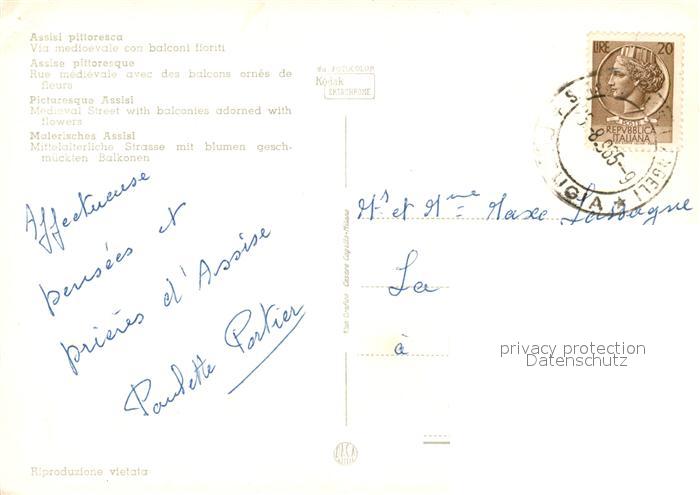 Assisi pittoresca
Via medioevale con balconi fioriti
Assise pittoresque
Rue médiévale avec des balcons ornés de
fleurs
Picturesque Assisi
Medieval Street with balconies adorned with
flowers
Malerisches Assisi
Mittelalterliche Strasse mit blumen gesch-
mückten Balkonen
Affectueuse
pensées et
prières d'Assise
Paulette Portier
Riproduzione vietata
Da FOTOCOLOR
Kodak
EKTACHROME
Cesare Capello-Milano
LIRE 20
POSTE
REPVBBLICA
ITALIANA
Mrs et Mme Maxe
La
à
privacy protection
Datenschutz